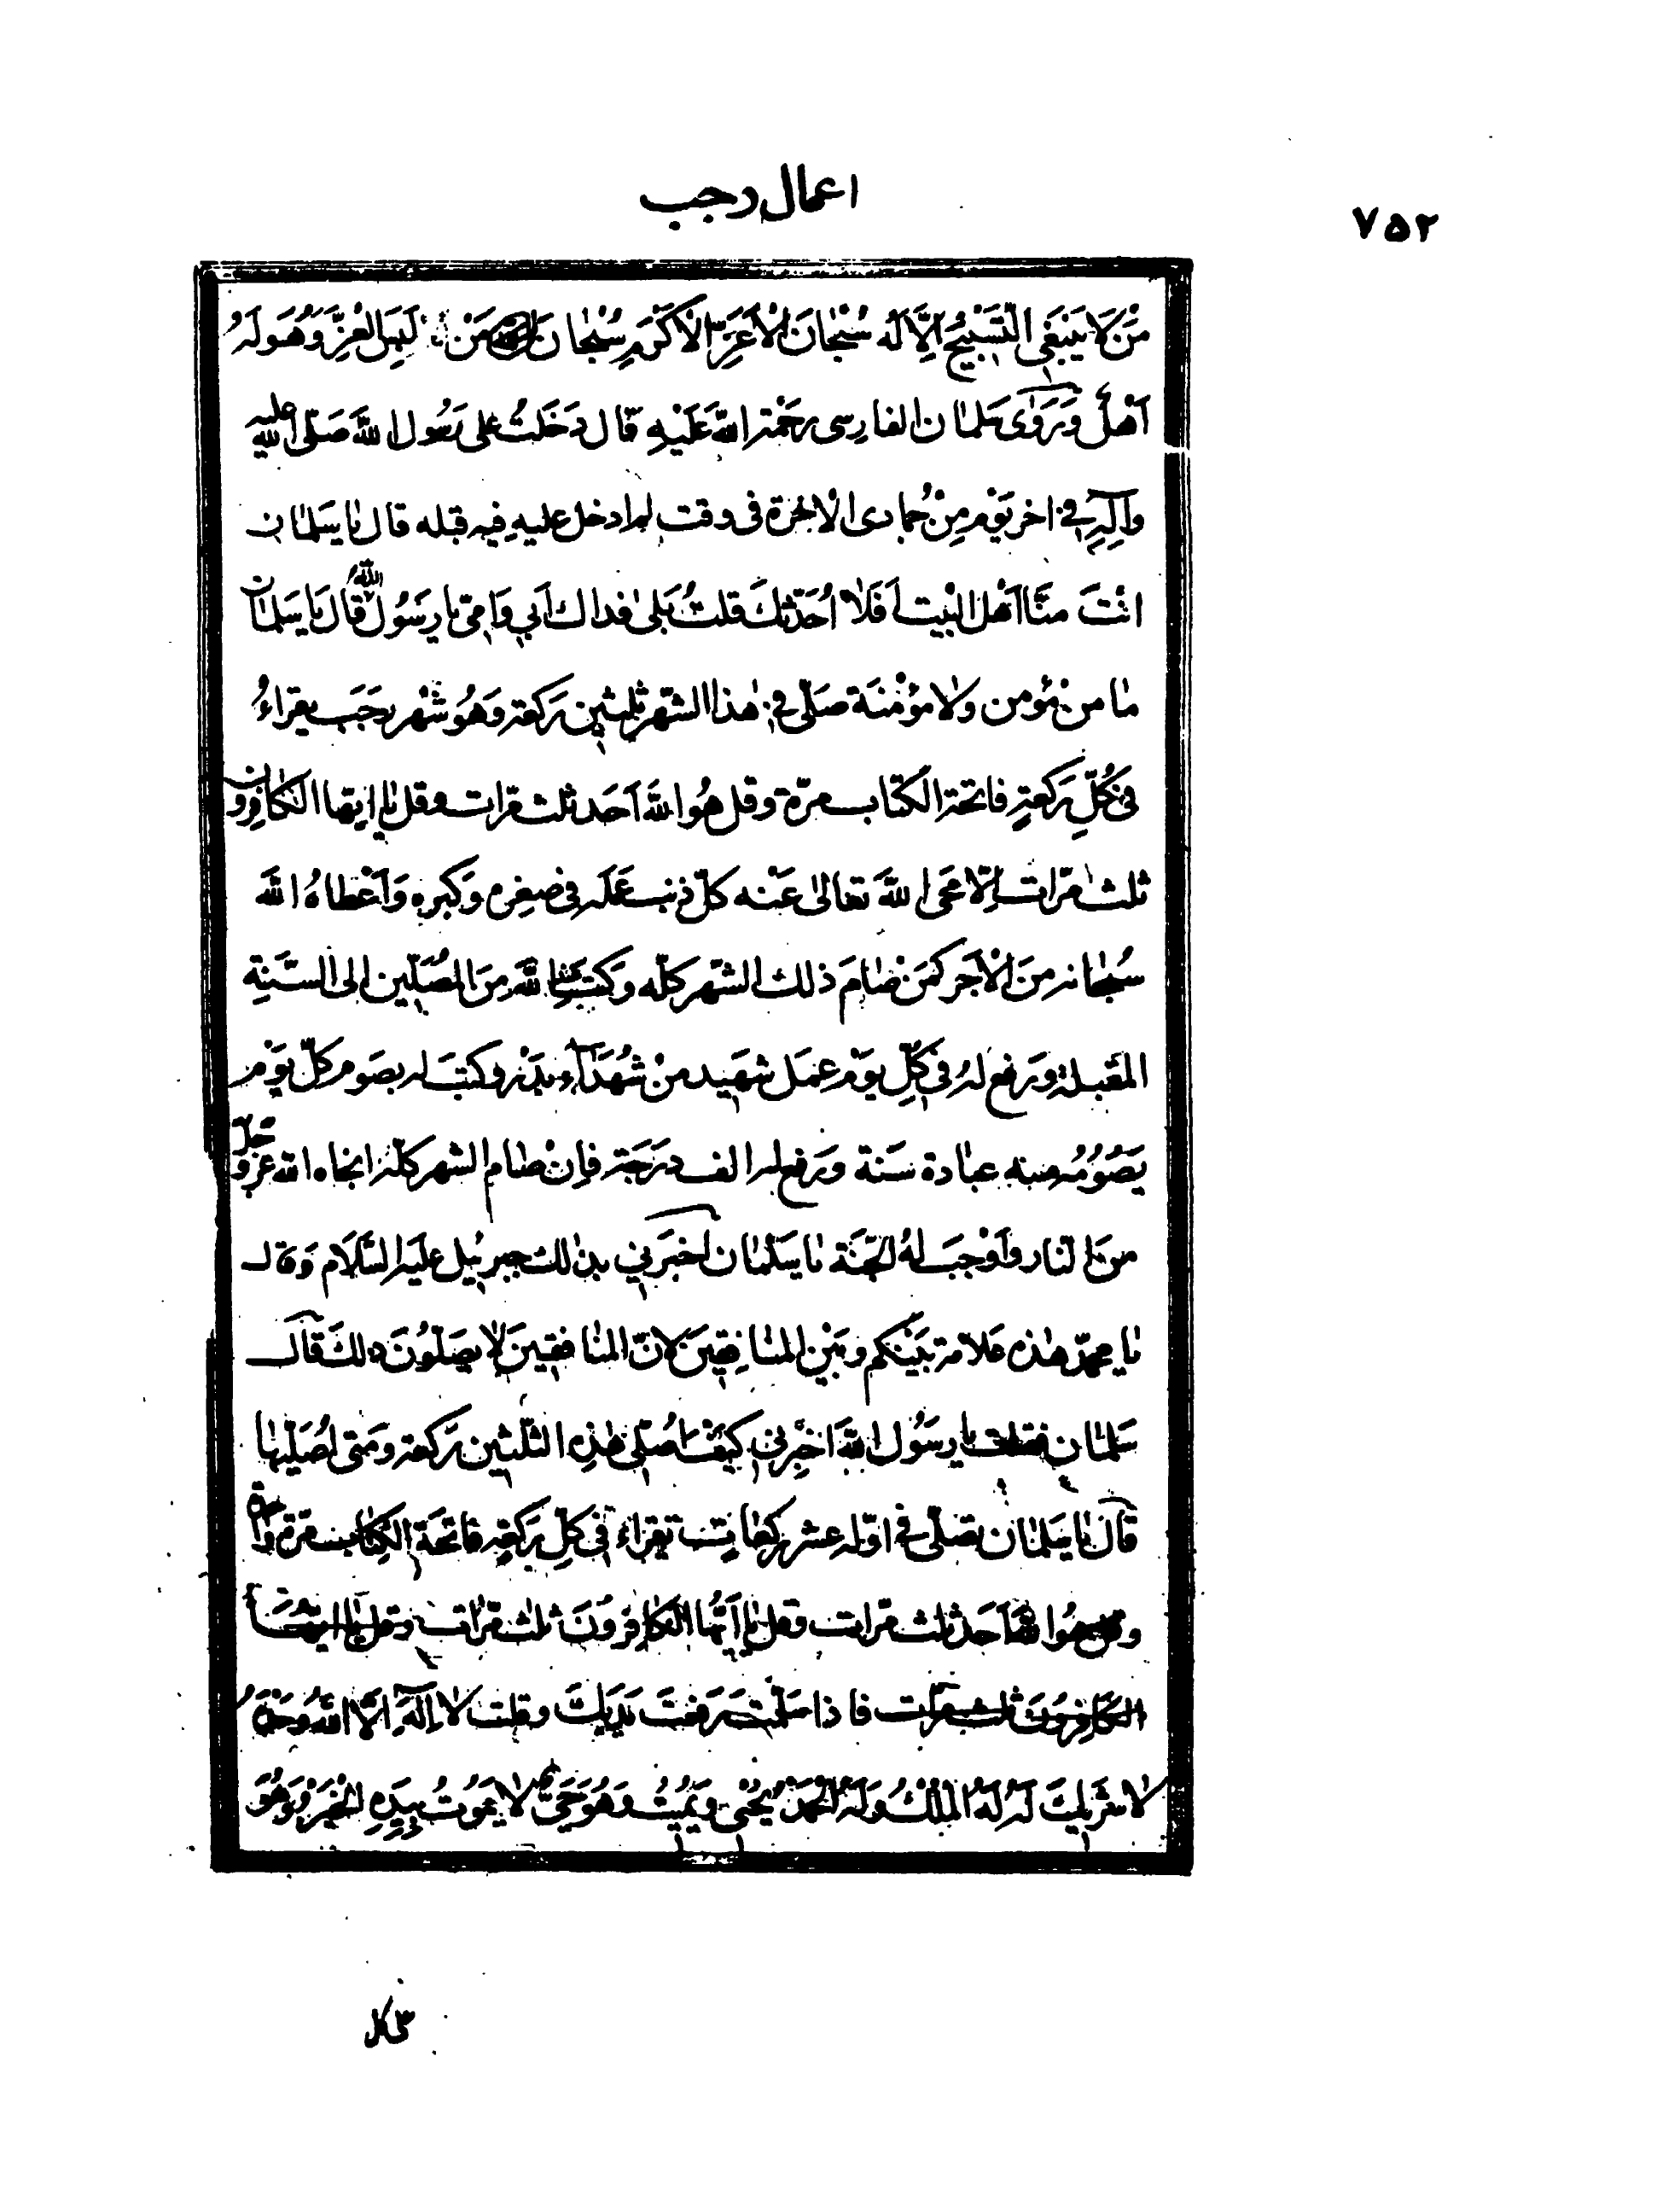 اعمال رجب
۷۵۲
مَنْ لَا يَنْبَغِى التَّسْبِيحُ اِلَّا لَهُ سُبْحَانَ الْاَعَزِّ الْاَكْرَمِ سُبْحَانَ مَنْ لَبِسَ الْعِزَّ وَهُوَ لَهُ
اَهْلٌ وَرَوٰى سَلْمَان الفارسى رحمة اللهِ عَلَيْهِ قال دَخَلتُ على رَسُول اللهِ صَلَّى اللهُ عليه
وآلِهِ فى اخر يَوْم مِنْ جُمادى الْاخرة فى وقت لم ادخل عليهِ فيه قبله قال يا سَلمان
انْتَ منّا اَهْل الْبيت اَفَلَا اُحَدِّثُكَ قلتُ بَلىٰ فداك اَبى وَامّى يا رسَوُل اللهِ قال يا سَلمان
مٰا من مُؤمن ولا مؤْمِنَة صَلّى فى هٰذا الشّهر ثلثين ركعة وَهُوَ شَهْر رجَبَ يقراءُ
فى كُلِّ رَكعةٍ فاتحة الكتاب مرّة وقل هُوَ اللهُ اَحَد ثلث مرّات وقل يا ايها الكافرون
ثلث مرّات اِلّا مَحَى اللهُ تعالىٰ عَنْه كلّ ذنب عَمله فى صغره وَكبره وَاَعْطاهُ اللهُ
سُبْحانه منَ الْاَجر كمَنْ صٰامَ ذلك الشّهر كلّه وَكتبَ اللهِ مِنَ المُصَلّين الى السَّنَةِ
المُقبلة ورَفع لهُ فى كلِّ يوَم عمَل شهَيد منْ شُهَدآء بَدْر وكتبَ له بصَوم كلّ يَوْم
يَصُوُمُه منه عبادة سَنة ورَفع له الف درَجَة فاِنْ صام الشهر كلّه انجاه الله عزّ وجلّ
منَ النار وَاَوْجَبَ لهُ الجَنّة يا سَلمان اخبَرَنى بذلك جبرئيل عليه السَّلَام وَقال
يا محمّد هٰذه علامة بَيْنكم وبَيْن المنافِقينَ لانّ المنافقينَ لا يصَلّوُنَ ذلكَ قالَ
سَلمان فقلت يا رسَوُل اللهِ اخبِرنى كيفَ اُصَلّى هٰذه الثلثين ركعة ومَتى اُصَلّيها
قالَ يا سَلمان تصَلّى فى اوّله عشر ركعات تقراء فى كلِّ رَكعة فاتحَة الكِتاب مرّة واحدة
وقل هُوَ اللهُ اَحَد ثلث مرّات وقل يا اَيُّهَا الكافِروُنَ ثلث مرّات وقل يا ايّهَا
الكَافِروُنَ ثلث مرّات فاذا سَلّمتَ رَفعتَ يَدَيكَ وقلت لا اِلٰهَ اِلَّا اللهُ وَحْدَهُ
لا شَريكَ لَهُ لَهُ الْمُلْكُ وَلَهُ الْحَمْدُ يُحْيى وَيُميتُ وَهُوَ حَىٌّ لا يَموُتُ بِيَدِهِ الخَيْرُ وَهُوَ